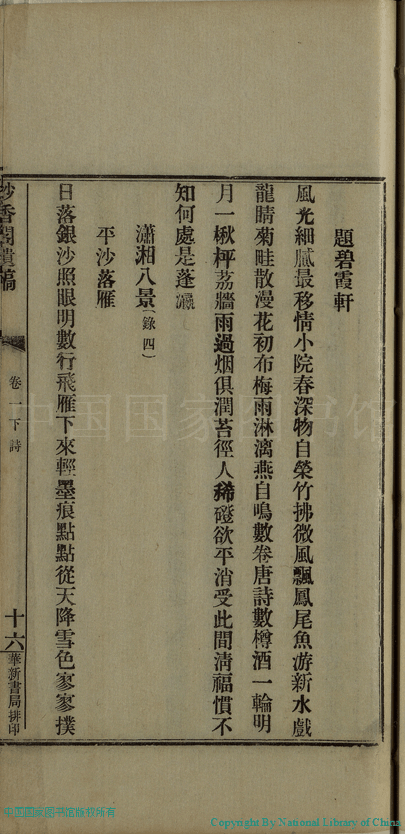 題碧霞軒
風光細膩最移情小院春深物自榮竹拂微風飄鳳尾魚游新水戲
龍睛菊畦散漫花初布梅雨淋漓燕自鳴數卷唐詩數樽酒一輪明
月一楸枰荔牆雨過烟俱潤苔徑人稀磴欲平消受此間清福慣不
知何處是蓬瀛
瀟湘八景（錄四）
平沙落雁
日落銀沙照眼明數行飛雁下來輕墨痕點點從天降雪色寥寥撲
香閣遺稿
卷一下 詩
十六
華新書局排印
中国国家图书馆
中国国家图书馆版权所有
Copyright By National Library of China